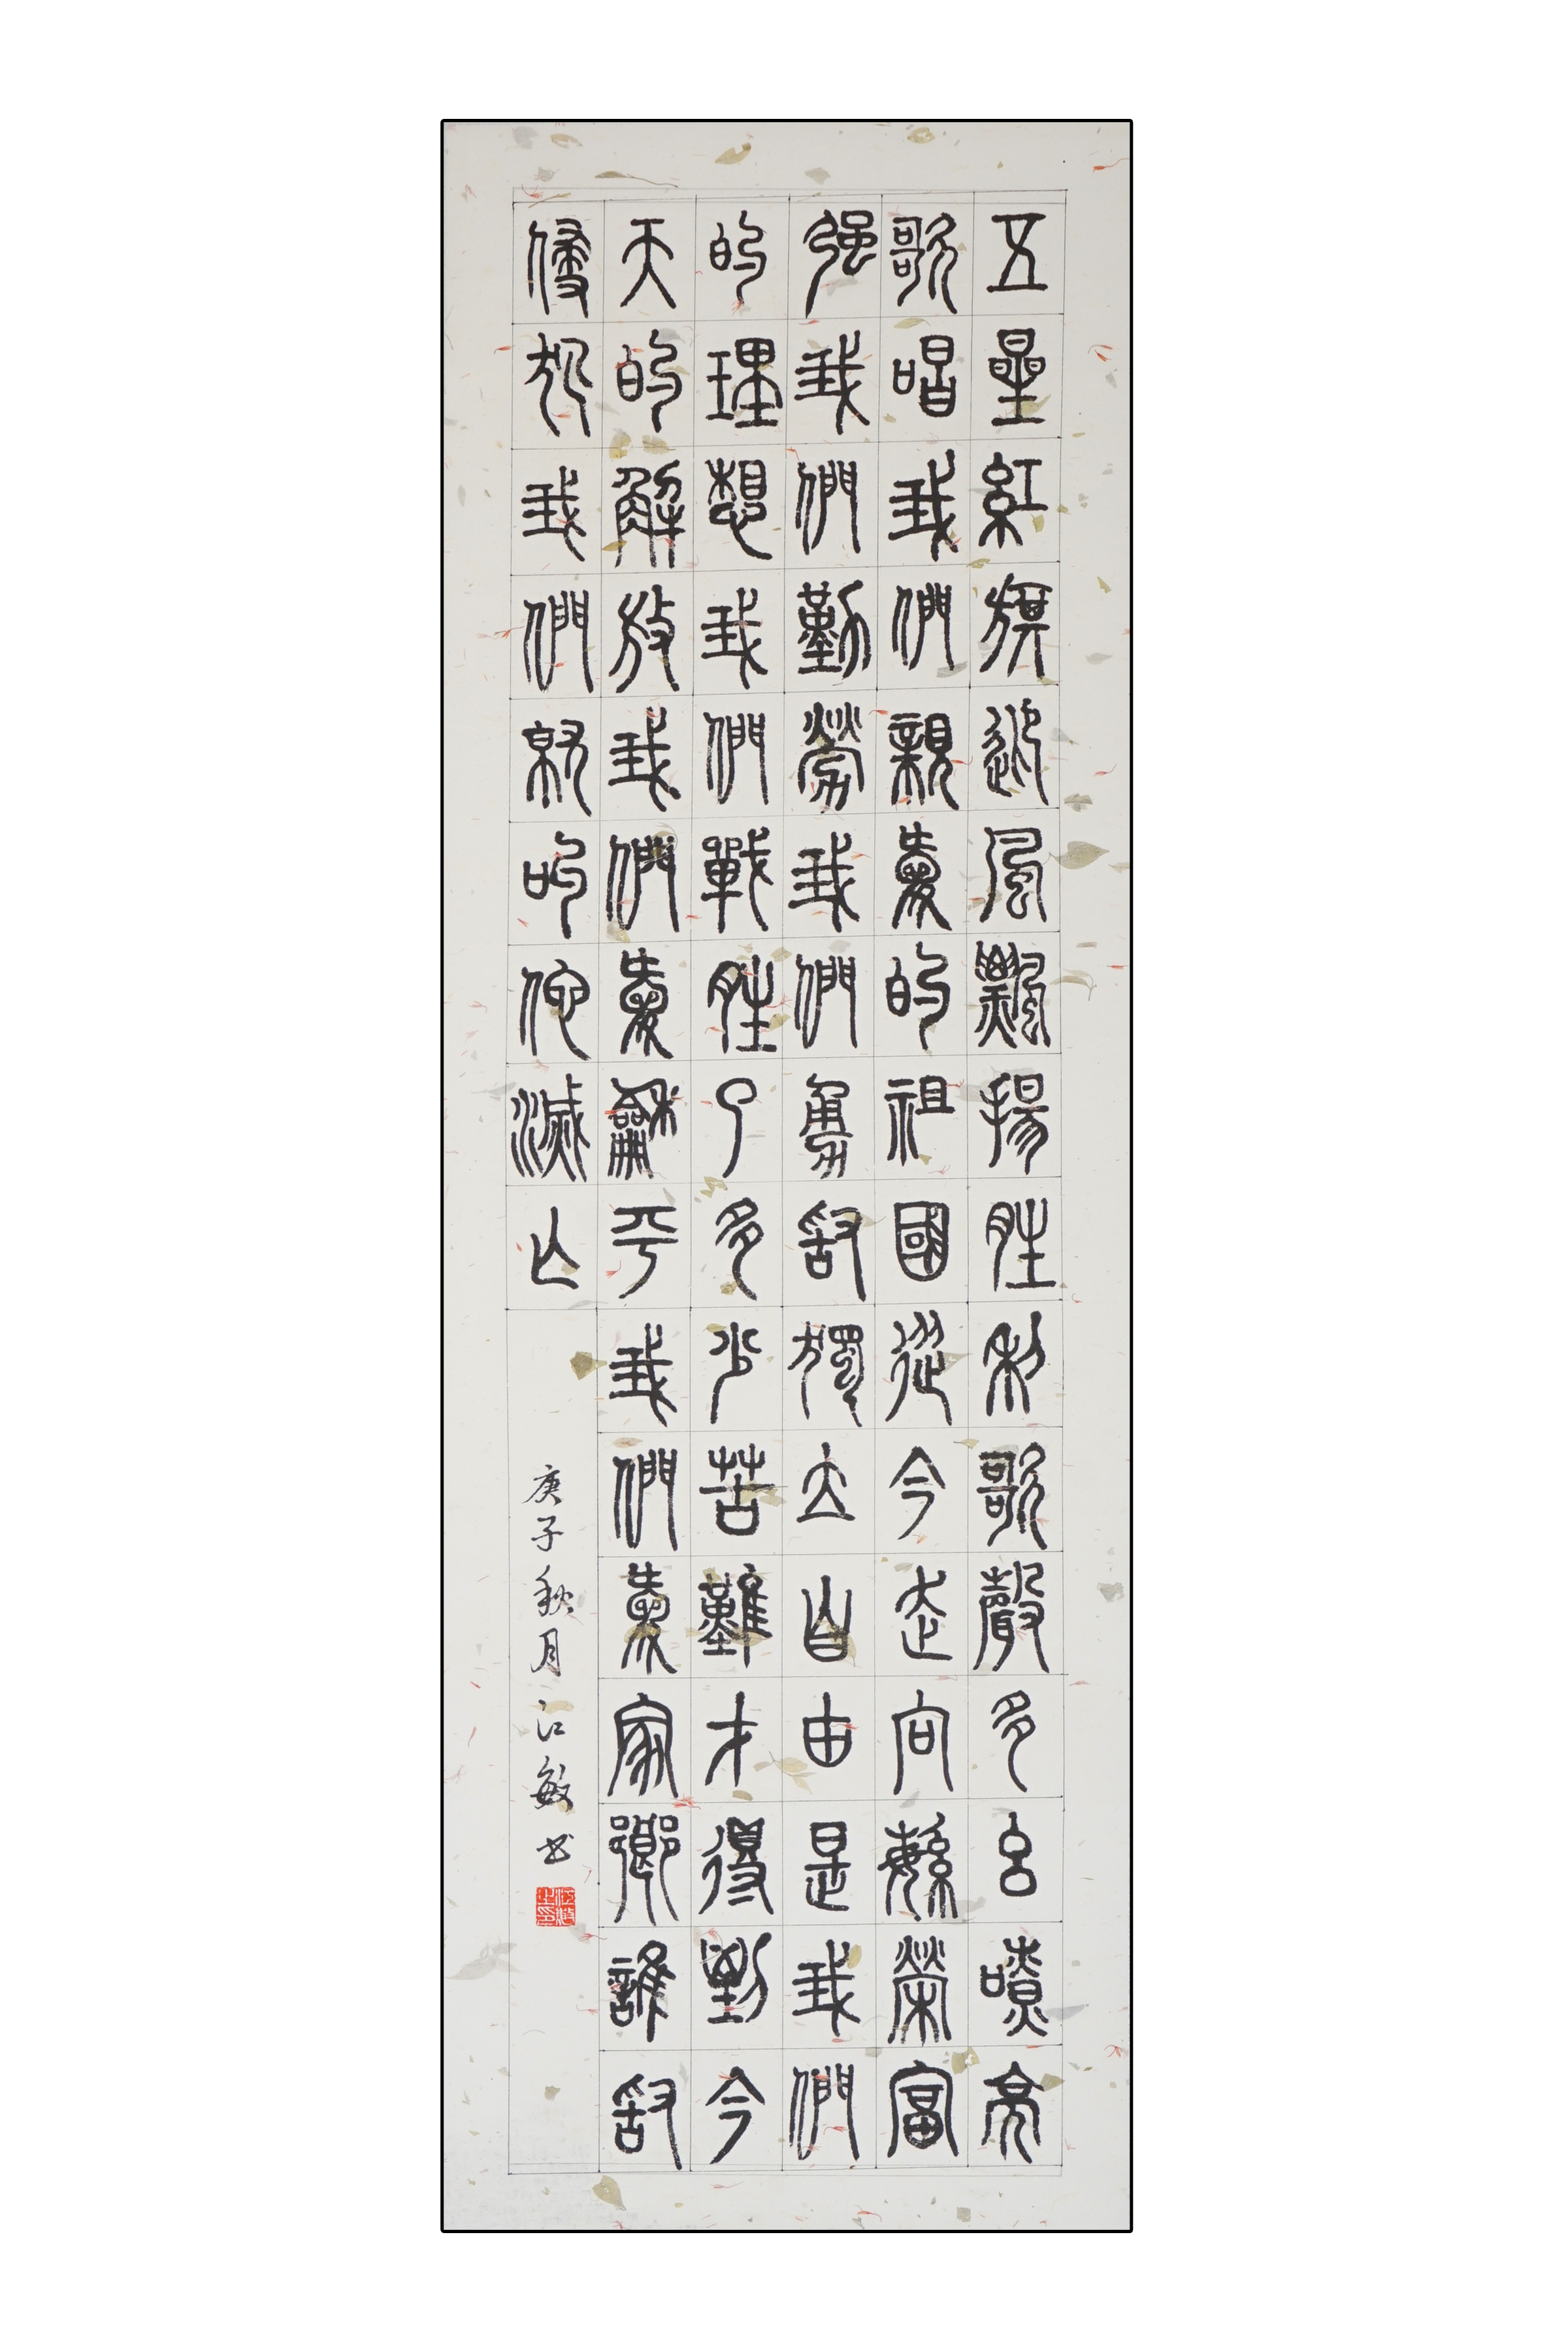 五星紅旗迎風飄揚胜利歌聲多么嘹亮
歌唱我們親愛的祖國從今走向繁榮富
强我們勤勞我們勇敢獨立自由是我們
的理想我們戰胜了多少苦難才得到今
天的解放我們愛龢平我們愛家鄉誰敢
侵犯我們就叫他滅亡
庚子秋月江敏书
江敏之印